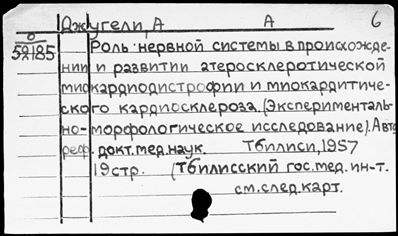 Джугели, А А 6
О
52185
Роль нервной системы в происхожде-
нии и развитии атеросклеротической
миокардиодистрофии и миокардитиче-
ского кардиосклероза. (Эксперименталь-
но-морфологическое исследование). Авто
реф. докт. мед. наук. Тбилиси, 1957
19 стр. (Тбилисский гос. мед. ин-т.
см. след. карт.